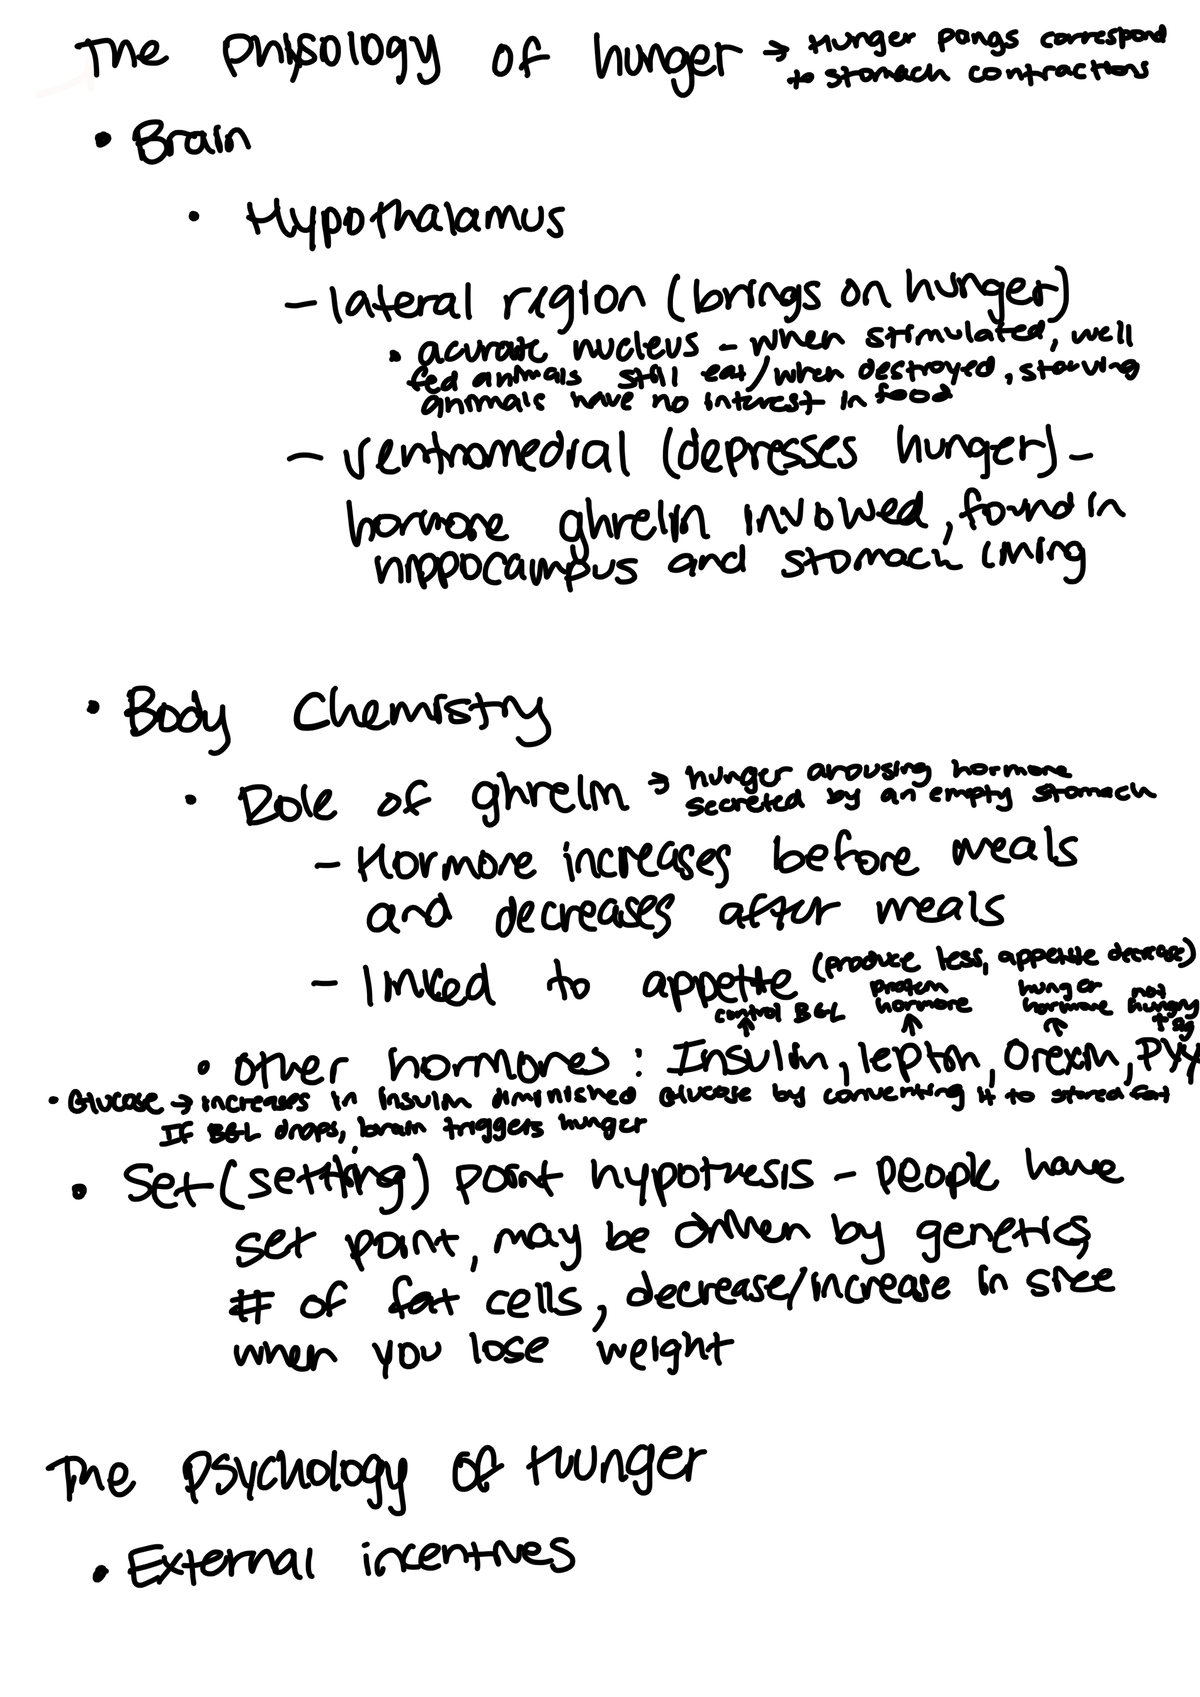 The phisology of hunger → Hunger pangs correspond
to stomach contractions
• Brain
• Hypothalamus
– lateral region (brings on hunger)
• acurate nucleus – when stimulated, well
fed animals still eat/when destroyed, starving
animals have no interest in food
– ventromedial (depresses hunger) –
hormone ghrelin involved, found in
hippocampus and stomach lining
• Body Chemistry
• Role of ghrelin → hunger arousing hormone
secreted by an empty stomach
– Hormone increases before meals
and decreases after meals
– linked to appetite (produce less, appetite decrease)
control BGL protein hormone hunger hormone not hungry
• other hormones: Insulin, leptin, Orexin, PYY
• Glucose → increases in insulin diminished glucose by converting it to stored fat
If BGL drops, brain triggers hunger
• Set (settling) point hypothesis – people have
set point, may be driven by genetics,
# of fat cells, decrease/increase in size
when you lose weight
The Psychology of Hunger
• External incentives